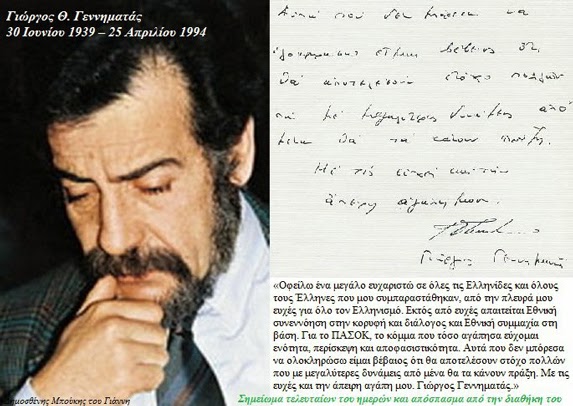 Γιώργος Θ. Γεννηματάς
30 Ιουνίου 1939 – 25 Απριλίου 1994
Αυτά που δεν μπόρεσα να
ολοκληρώσω είμαι βέβαιος ότι
θα αποτελέσουν στόχο πολλών
που με μεγαλύτερες δυνάμεις από
μένα θα τα κάνουν πράξη.
Με τις ευχές και την
άπειρη αγάπη μου.
Γιώργος Γεννηματάς
«Οφείλω ένα μεγάλο ευχαριστώ σε όλες τις Ελληνίδες και όλους
τους Έλληνες που μου συμπαραστάθηκαν, από την πλευρά μου
ευχές για όλο τον Ελληνισμό. Εκτός από ευχές απαιτείται Εθνική
συνεννόηση στην κορυφή και διάλογος και Εθνική συμμαχία στη
βάση. Για το ΠΑΣΟΚ, το κόμμα που τόσο αγάπησα εύχομαι
ενότητα, περίσκεψη και αποφασιστικότητα. Αυτά που δεν μπόρεσα
να ολοκληρώσω είμαι βέβαιος ότι θα αποτελέσουν στόχο πολλών
που με μεγαλύτερες δυνάμεις από μένα θα τα κάνουν πράξη. Με τις
ευχές και την άπειρη αγάπη μου. Γιώργος Γεννηματάς.»
Δημοσθένης Μπούκης του Γιάννη
Σημείωμα τελευταίων του ημερών και απόσπασμα από την διαθήκη του